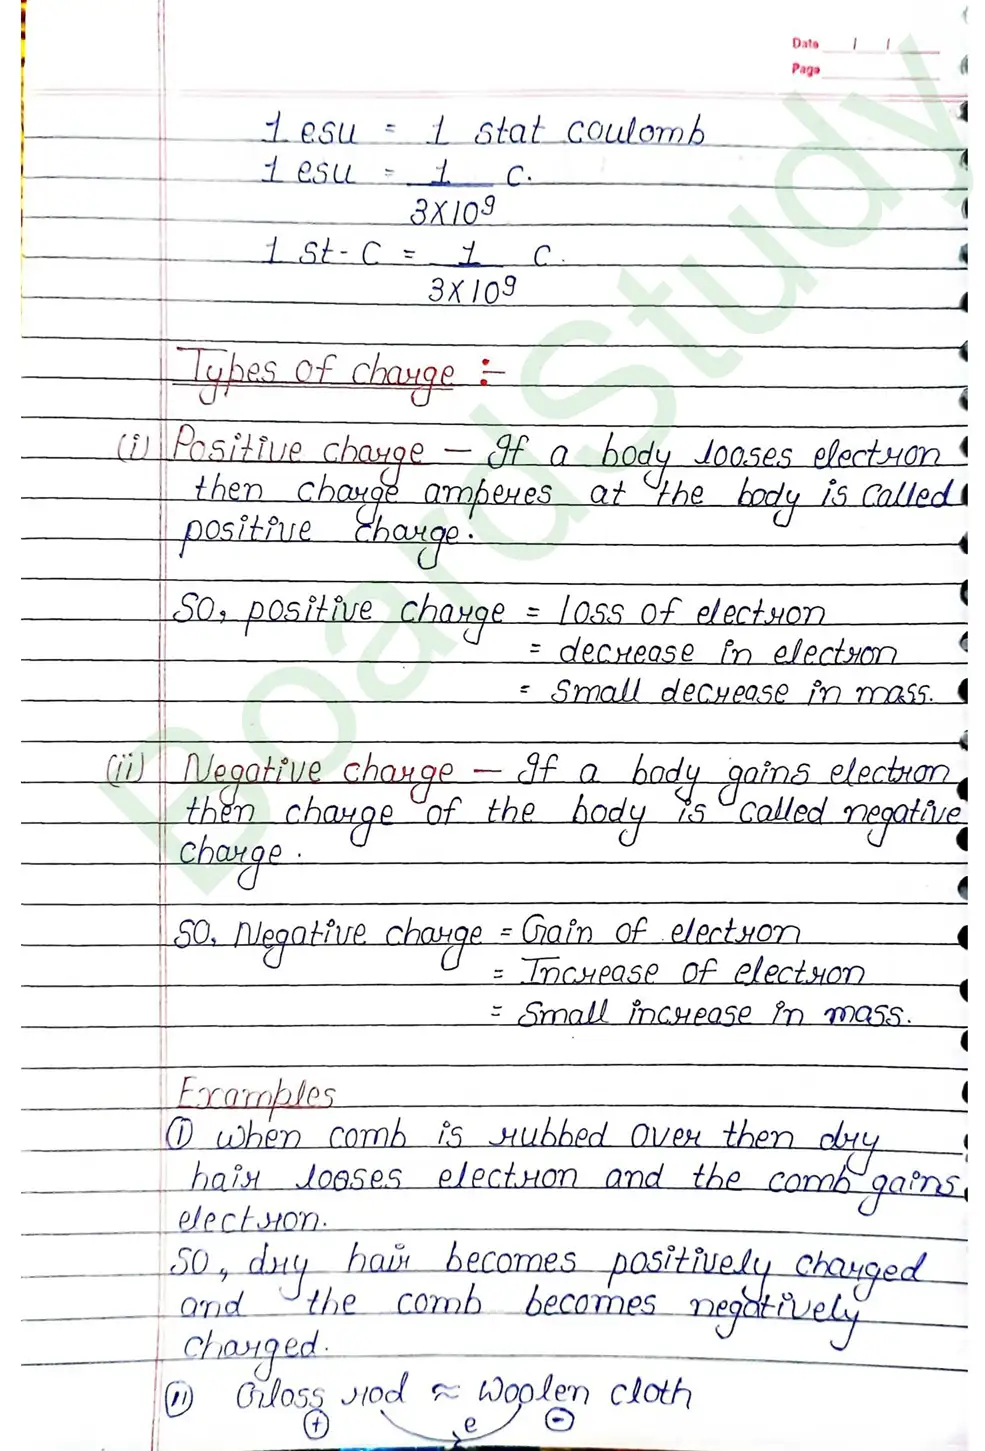 Date / /
Page
1 esu = 1 stat coulomb
1 esu = 1 C.
3X10⁹
1 St-C = 1 C.
3X10⁹
Types of charge :-
(i) Positive charge — If a body looses electron
then charge amperes at the body is called
positive charge.
So, positive charge = loss of electron
= decrease in electron
= Small decrease in mass.
(ii) Negative charge — If a body gains electron
then charge of the body is called negative
charge.
So, Negative charge = Gain of electron
= Increase of electron
= Small increase in mass.
Examples
(i) when comb is rubbed over then dry
hair looses electron and the comb gains
electron.
So, dry hair becomes positively charged
and the comb becomes negatively
charged.
(ii) Glass rod ≈ Woolen cloth
+ e −
BoardStudy